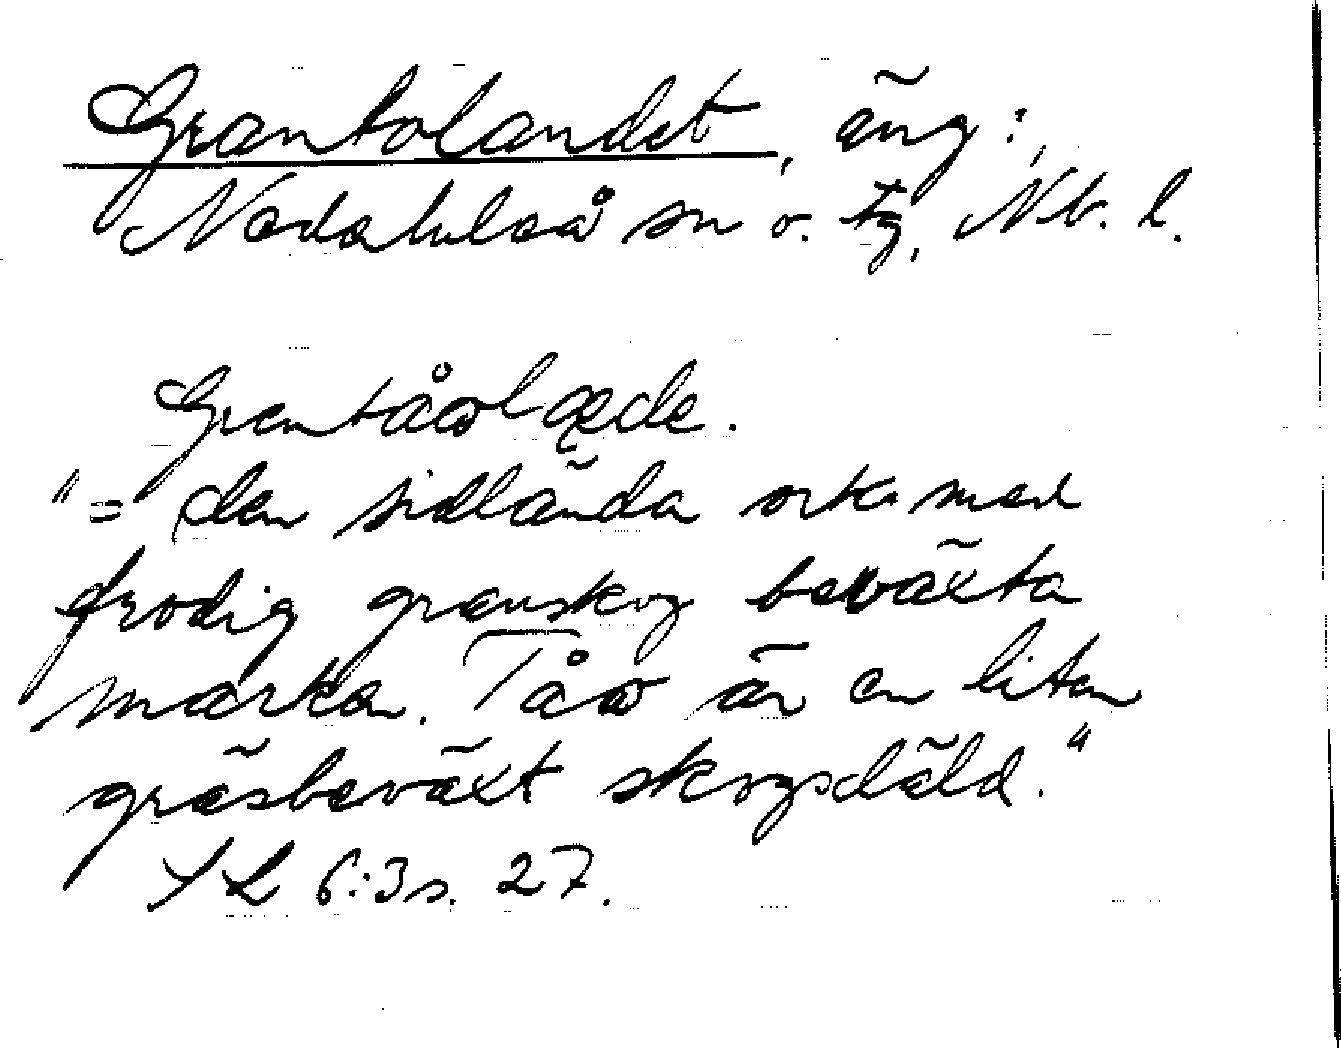 Grantolandet, äng:
Nederluleå sn o. tg, Nb. l.
Grantåωlande.
"= den sidlända och med
frodig granskog beväxta
marken. Tåω är en liten
gräsbeväxt skogsdäld."
SL 6:3 s. 27.